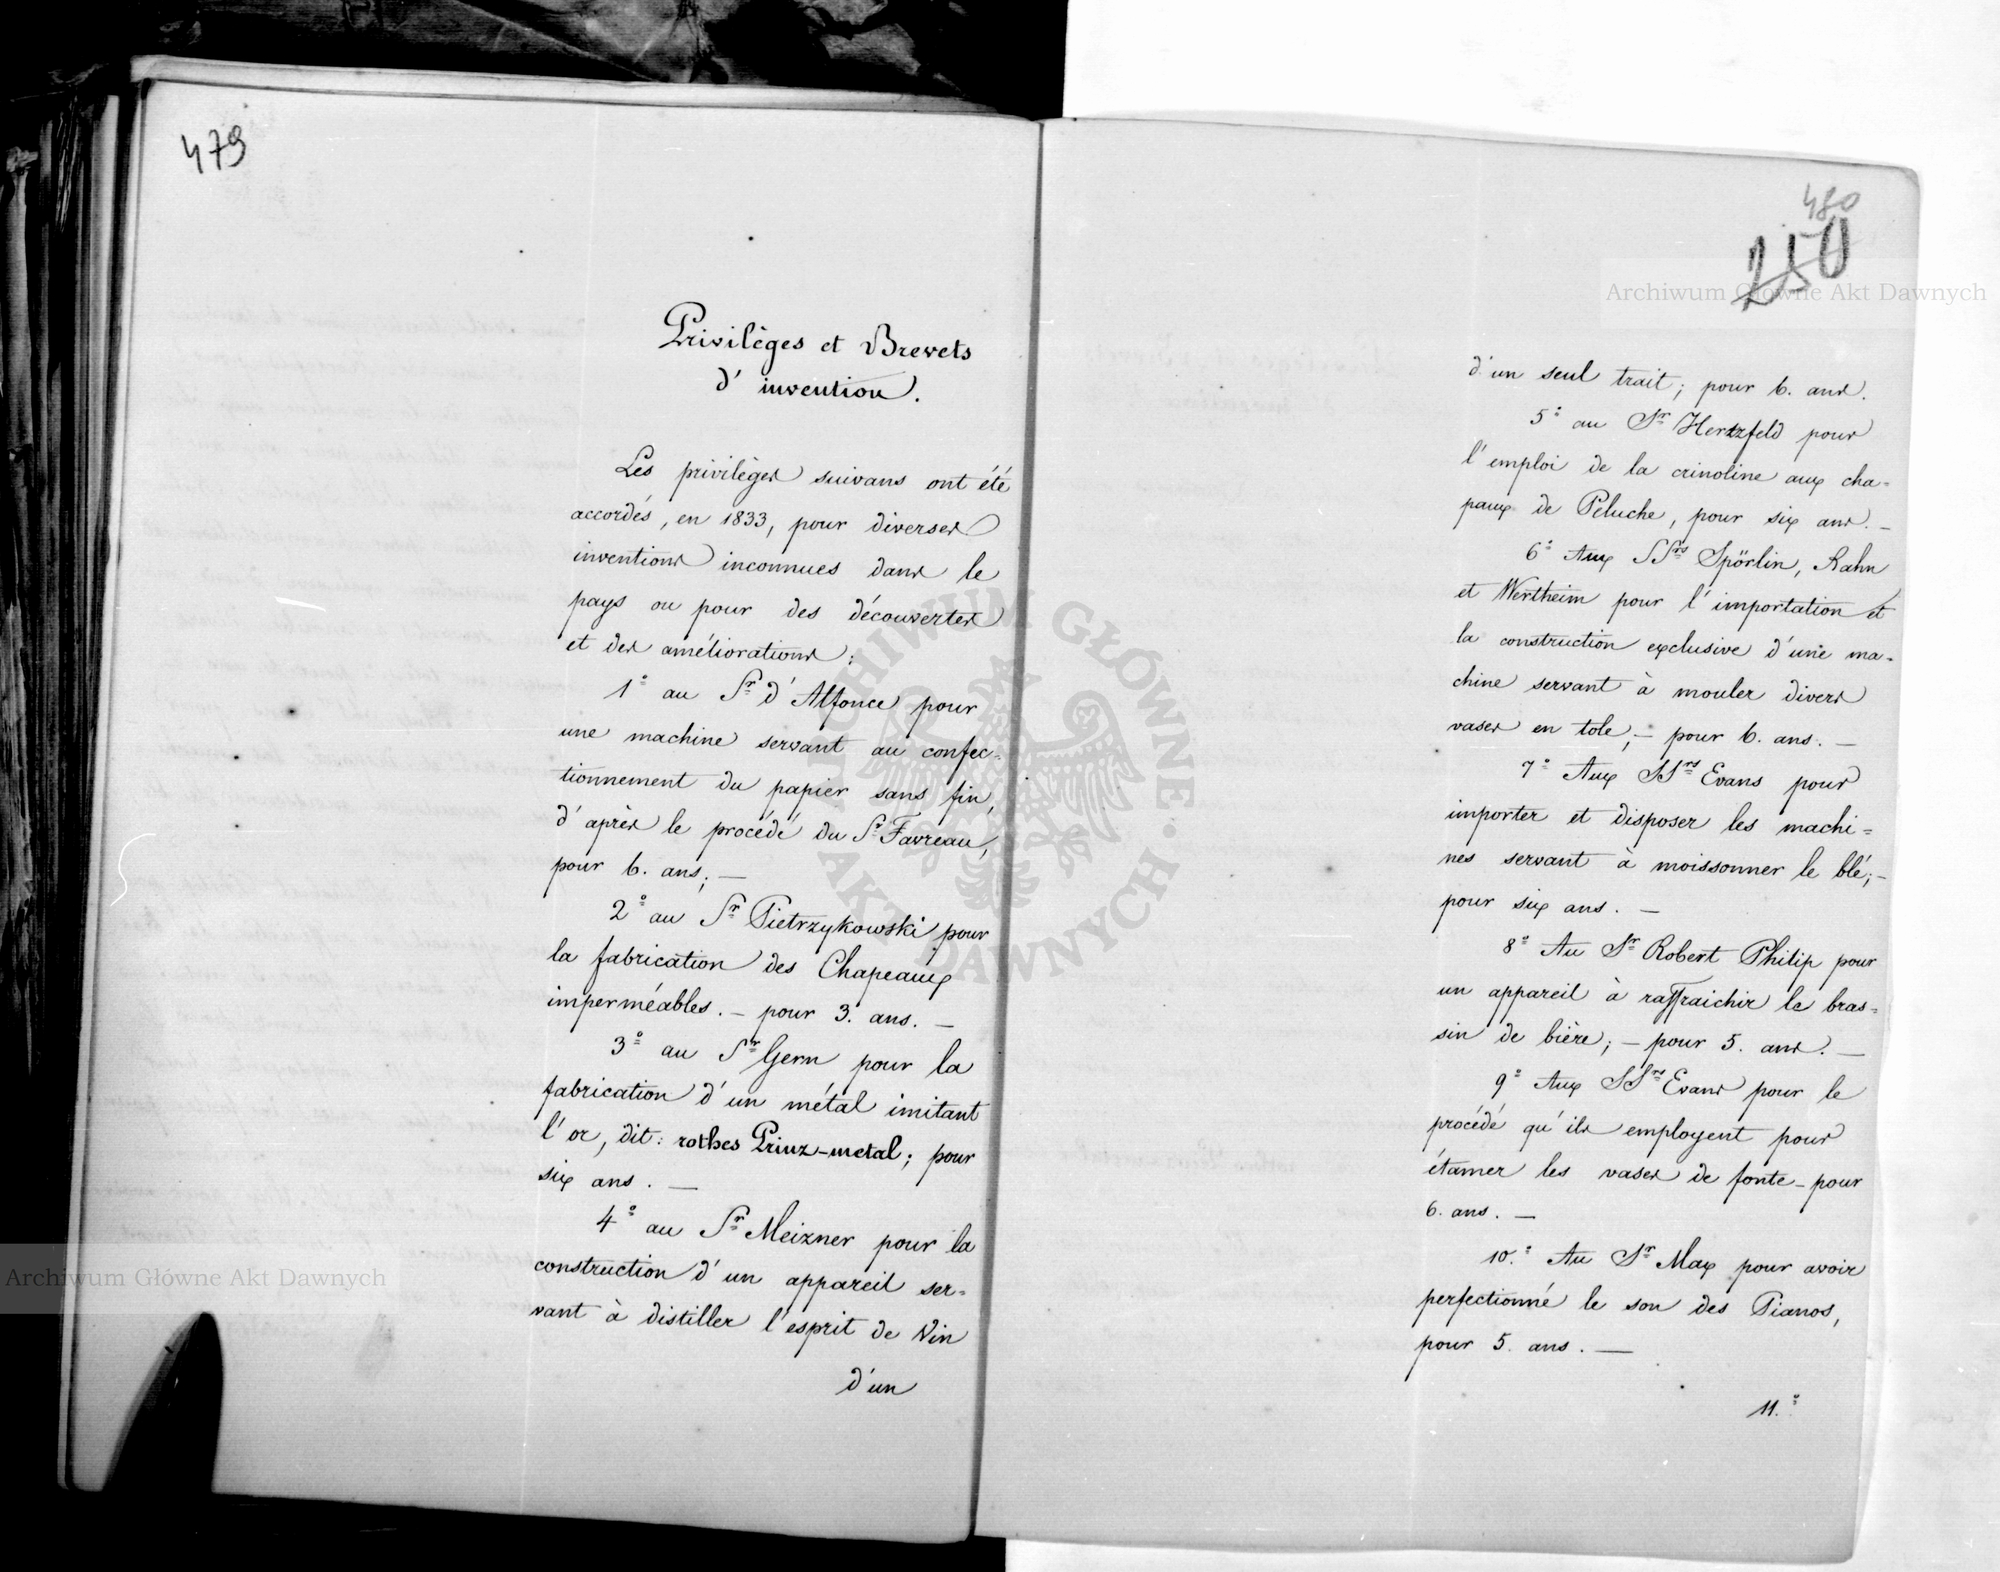 479
Privilèges et Brevets
d'invention.
Les privilèges suivans ont été
accordés, en 1833, pour diverses
inventions inconnues dans le
pays ou pour des découvertes
et des améliorations:
1° au Sr d'Alfonce pour
une machine servant au confec-
tionnement du papier sans fin,
d'après le procédé du Sr Favreau,
pour 6. ans; —
2° au Sr Pietrzykowski pour
la fabrication des Chapeaux
imperméables. — pour 3. ans. —
3° au Sr Gern pour la
fabrication d'un métal imitant
l'or, dit: rothes Prinz-metal; pour
six ans. —
4° au Sr Meizner pour la
construction d'un appareil ser-
vant à distiller l'esprit de Vin
d'un
480
250
d'un seul trait; pour 6. ans.
5° au Sr Hertzfeld pour
l'emploi de la crinoline aux cha-
paux de Peluche, pour six ans. —
6° Aux SSrs Spörlin, Rahn
et Wertheim pour l'importation et
la construction exclusive d'une ma-
chine servant à mouler divers
vases en tole, — pour 6. ans. —
7° Aux SSrs Evans pour
importer et disposer les machi-
nes servant à moissonner le blé; —
pour six ans. —
8° Au Sr Robert Philip pour
un appareil à raffraichir le bras-
sin de bière; — pour 5. ans. —
9° Aux SSrs Evans pour le
procédé qu'ils employent pour
étamer les vases de fonte — pour
6. ans. —
10.° Au Sr Max pour avoir
perfectionné le son des Pianos,
pour 5. ans. —
11.°
Archiwum Główne Akt Dawnych
Archiwum Główne Akt Dawnych
ARCHIWUM GŁÓWNE AKT DAWNYCH